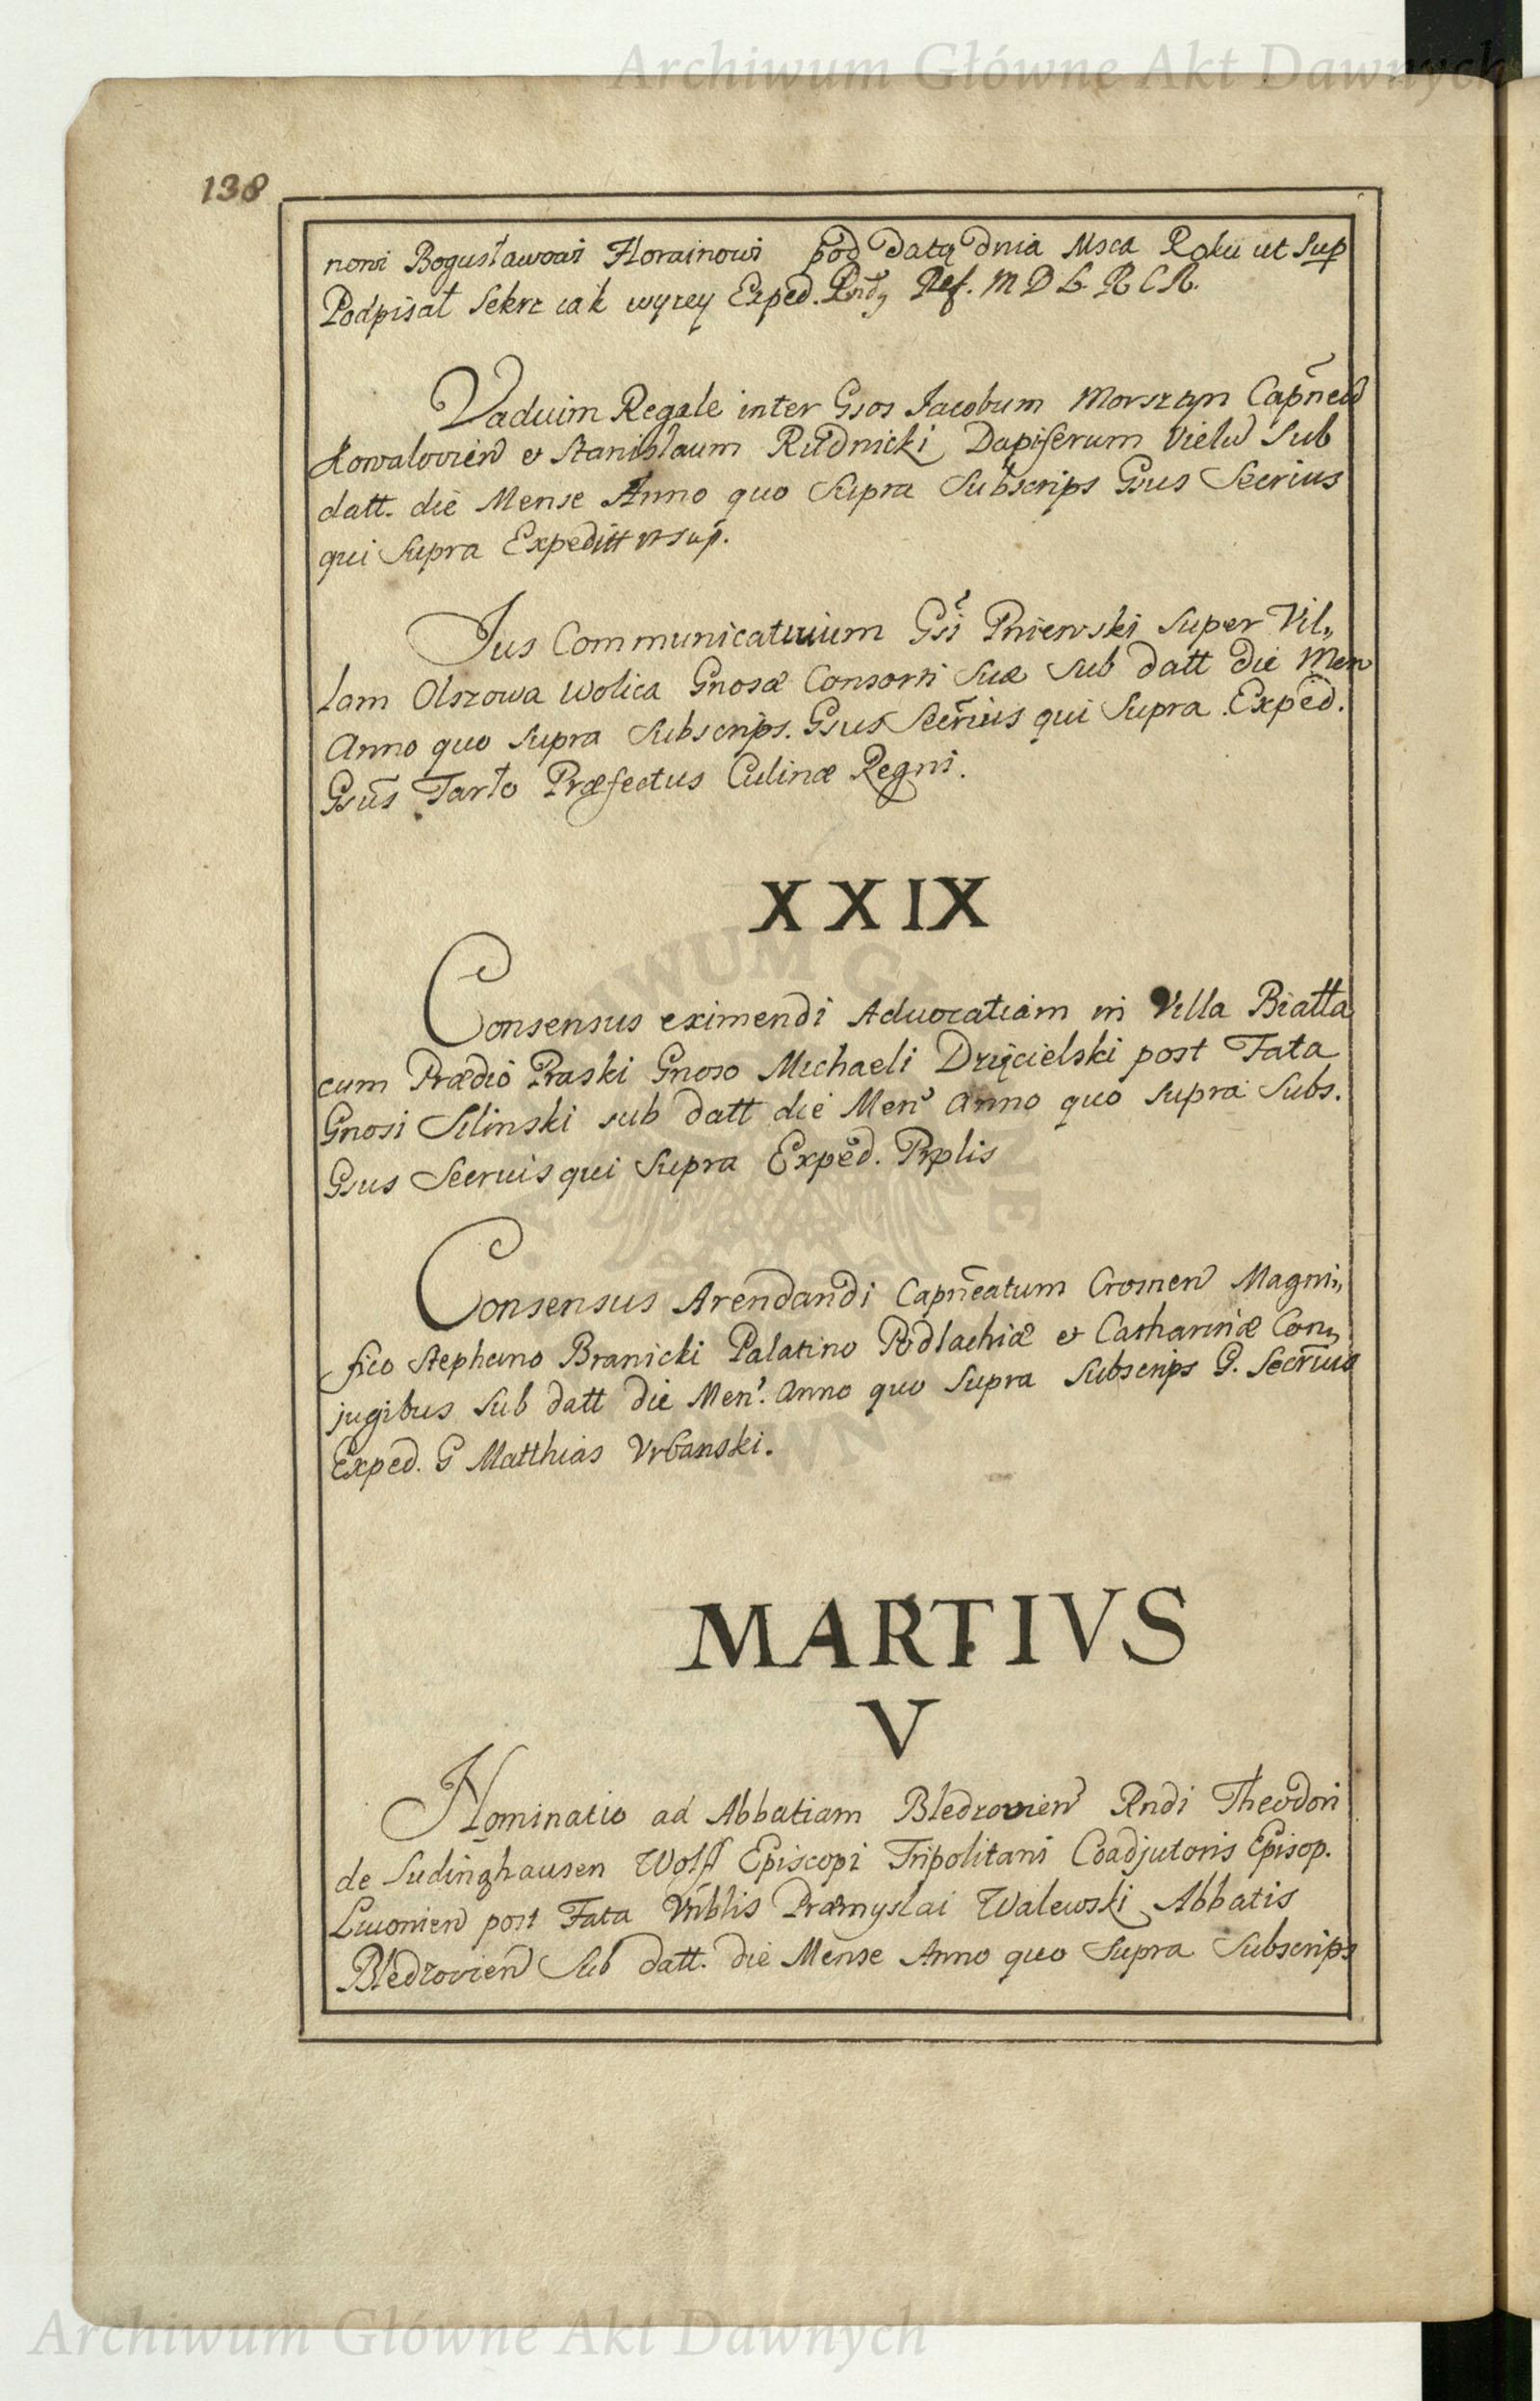 Archiwum Główne Akt Dawnych
138
nowi Bogusławowi Florainowi pod datą dnia Msca Roku ut Sup
Podpisał Sekrz iak wyzey Exped. Rndg Ref. M D L R C R.
Vadium Regale inter Gsos Jacobum Morsztyn Capneū
Kowalovien et Stanislaum Rudnicki Dapiferum Vielu Sub
datt. die Mense Anno quo Supra Subscrips Gsus Secrius
qui Supra Expeditt ut sup.
Jus Communicativum Gsi Pniewski Super Vil„
lam Olszowa Wolica Gnosæ Consorti Suæ Sub datt die Men
Anno quo Supra Subscrips. Gsus Secrius qui Supra Exped.
Gsus Tarło Præfectus Culinæ Regni.
XXIX
Consensus eximendi Advocatiam in Villa Biatta
cum Prædio Praski Gnoso Michaeli Dzięcielski post Fata
Gnosi Silinski sub datt die Men Anno quo supra Subs.
Gsus Secrius qui Supra Exped. Rplis
Consensus Arendandi Capneatum Crosnen Magni„
fico Stephano Branicki Palatino Podlachiæ et Catharinæ Con„
jugibus Sub datt die Men. Anno quo Supra Subscrips G. Secrius
Exped. G Matthias Vrbanski.
MARTIVS
V
Nominatio ad Abbatiam Bledzovien Rndi Theodori
de Ludinghausen Wolff Episcopi Tripolitani Coadjutoris Episop.
Livonien post Fata Vnblis Præmyslai Walewski Abbatis
Bledzovien Sub datt. die Mense Anno quo Supra Subscrips
Archiwum Główne Akt Dawnych